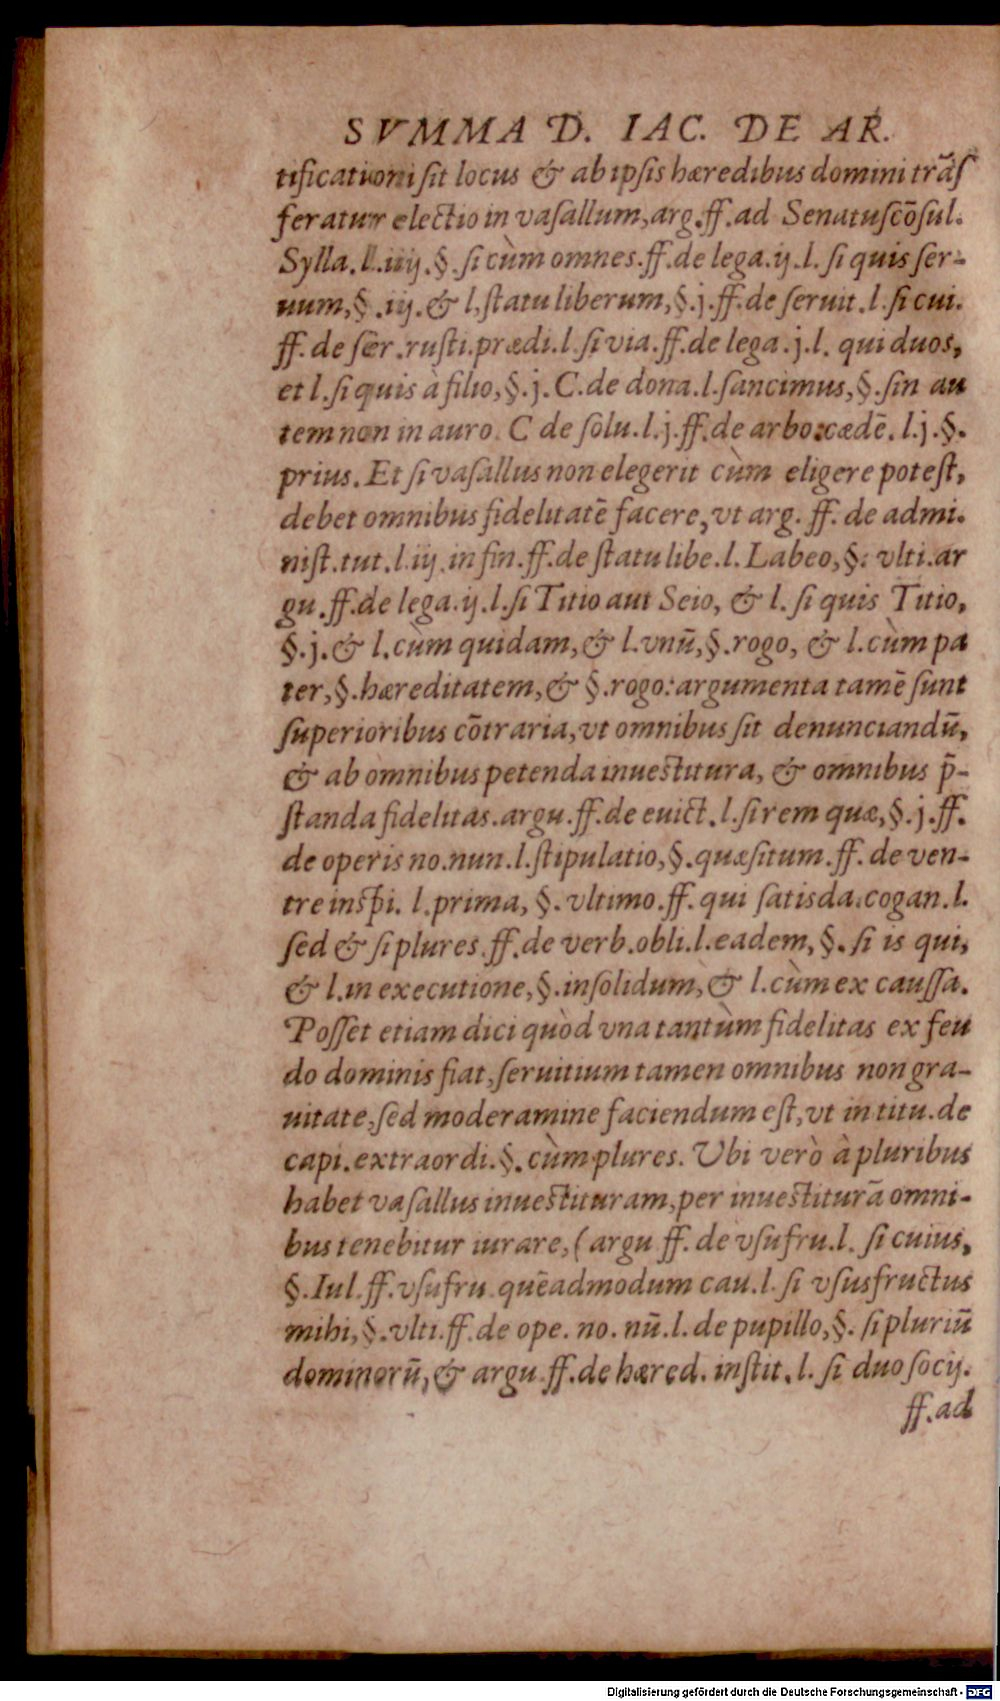 SVMMA D. IAC. DE AR.
tificationi sit locus & ab ipsis hæredibus domini trāſ
feratur electio in vaſallum, arg. ff. ad Senatuſcōſul.
Sylla. l. iiij. §. ſi cùm omnes. ff. de lega. ij. l. ſi quis ſer-
uum, §. iij. & l, ſtatu liberum, §. j. ff. de ſeruit. l. ſi cui.
ff. de ſer. ruſti. prædi. l. ſi via. ff. de lega. j. l. qui duos,
et l. ſi quis à filio, §. j. C. de dona. l. ſancimus, §. ſin au
tem non in auro. C de ſolu. l. j. ff. de arbo. cædē. l. j. §.
prius. Et ſi vaſallus non elegerit cùm eligere poteſt,
debet omnibus fidelitatē facere, vt arg. ff. de admi.
niſt. tut. l. iij. in fin. ff. de ſtatu libe. l. Labeo, §. vlti. ar
gu. ff. de lega. ij. l. ſi Titio aut Seio, & l. ſi quis Titio,
§. j. & l. cùm quidam, & l. vnū, §. rogo, & l. cùm pa
ter, §. hæreditatem, & §. rogo: argumenta tamē ſunt
ſuperioribus cōtraria, vt omnibus ſit denunciandū,
& ab omnibus petenda inueſtitura, & omnibus p̄-
ſtanda fidelitas. argu. ff. de euict. l. ſi rem quæ, §. j. ff.
de operis no. nun. l. ſtipulatio, §. quæſitum. ff. de ven-
tre inſpi. l. prima, §. vltimo. ff. qui ſatisda. cogan. l.
ſed & ſi plures. ff. de verb. obli. l. eadem, §. ſi is qui,
& l. in executione, §. in ſolidum, & l. cùm ex cauſſa.
Poſſet etiam dici quòd vna tantùm fidelitas ex feu
do dominis fiat, ſeruitium tamen omnibus non gra-
uitate, ſed moderamine faciendum eſt, vt in titu. de
capi. extraordi. §. cùm plures. Ubi verò à pluribus
habet vaſallus inueſtituram, per inueſtiturā omni-
bus tenebitur iurare, ( argu ff. de vſufru. l. ſi cuius,
§. Iul. ff. vſufru. quēadmodum cau. l. ſi vſusfructus
mihi, §. vlti. ff. de ope. no. nū. l. de pupillo, §. ſi pluriū
dominorū, & argu ff. de hæred. inſtit. l. ſi duo ſocij.
ff. ad
Digitalisierung gefördert durch die Deutsche Forschungsgemeinschaft - DFG